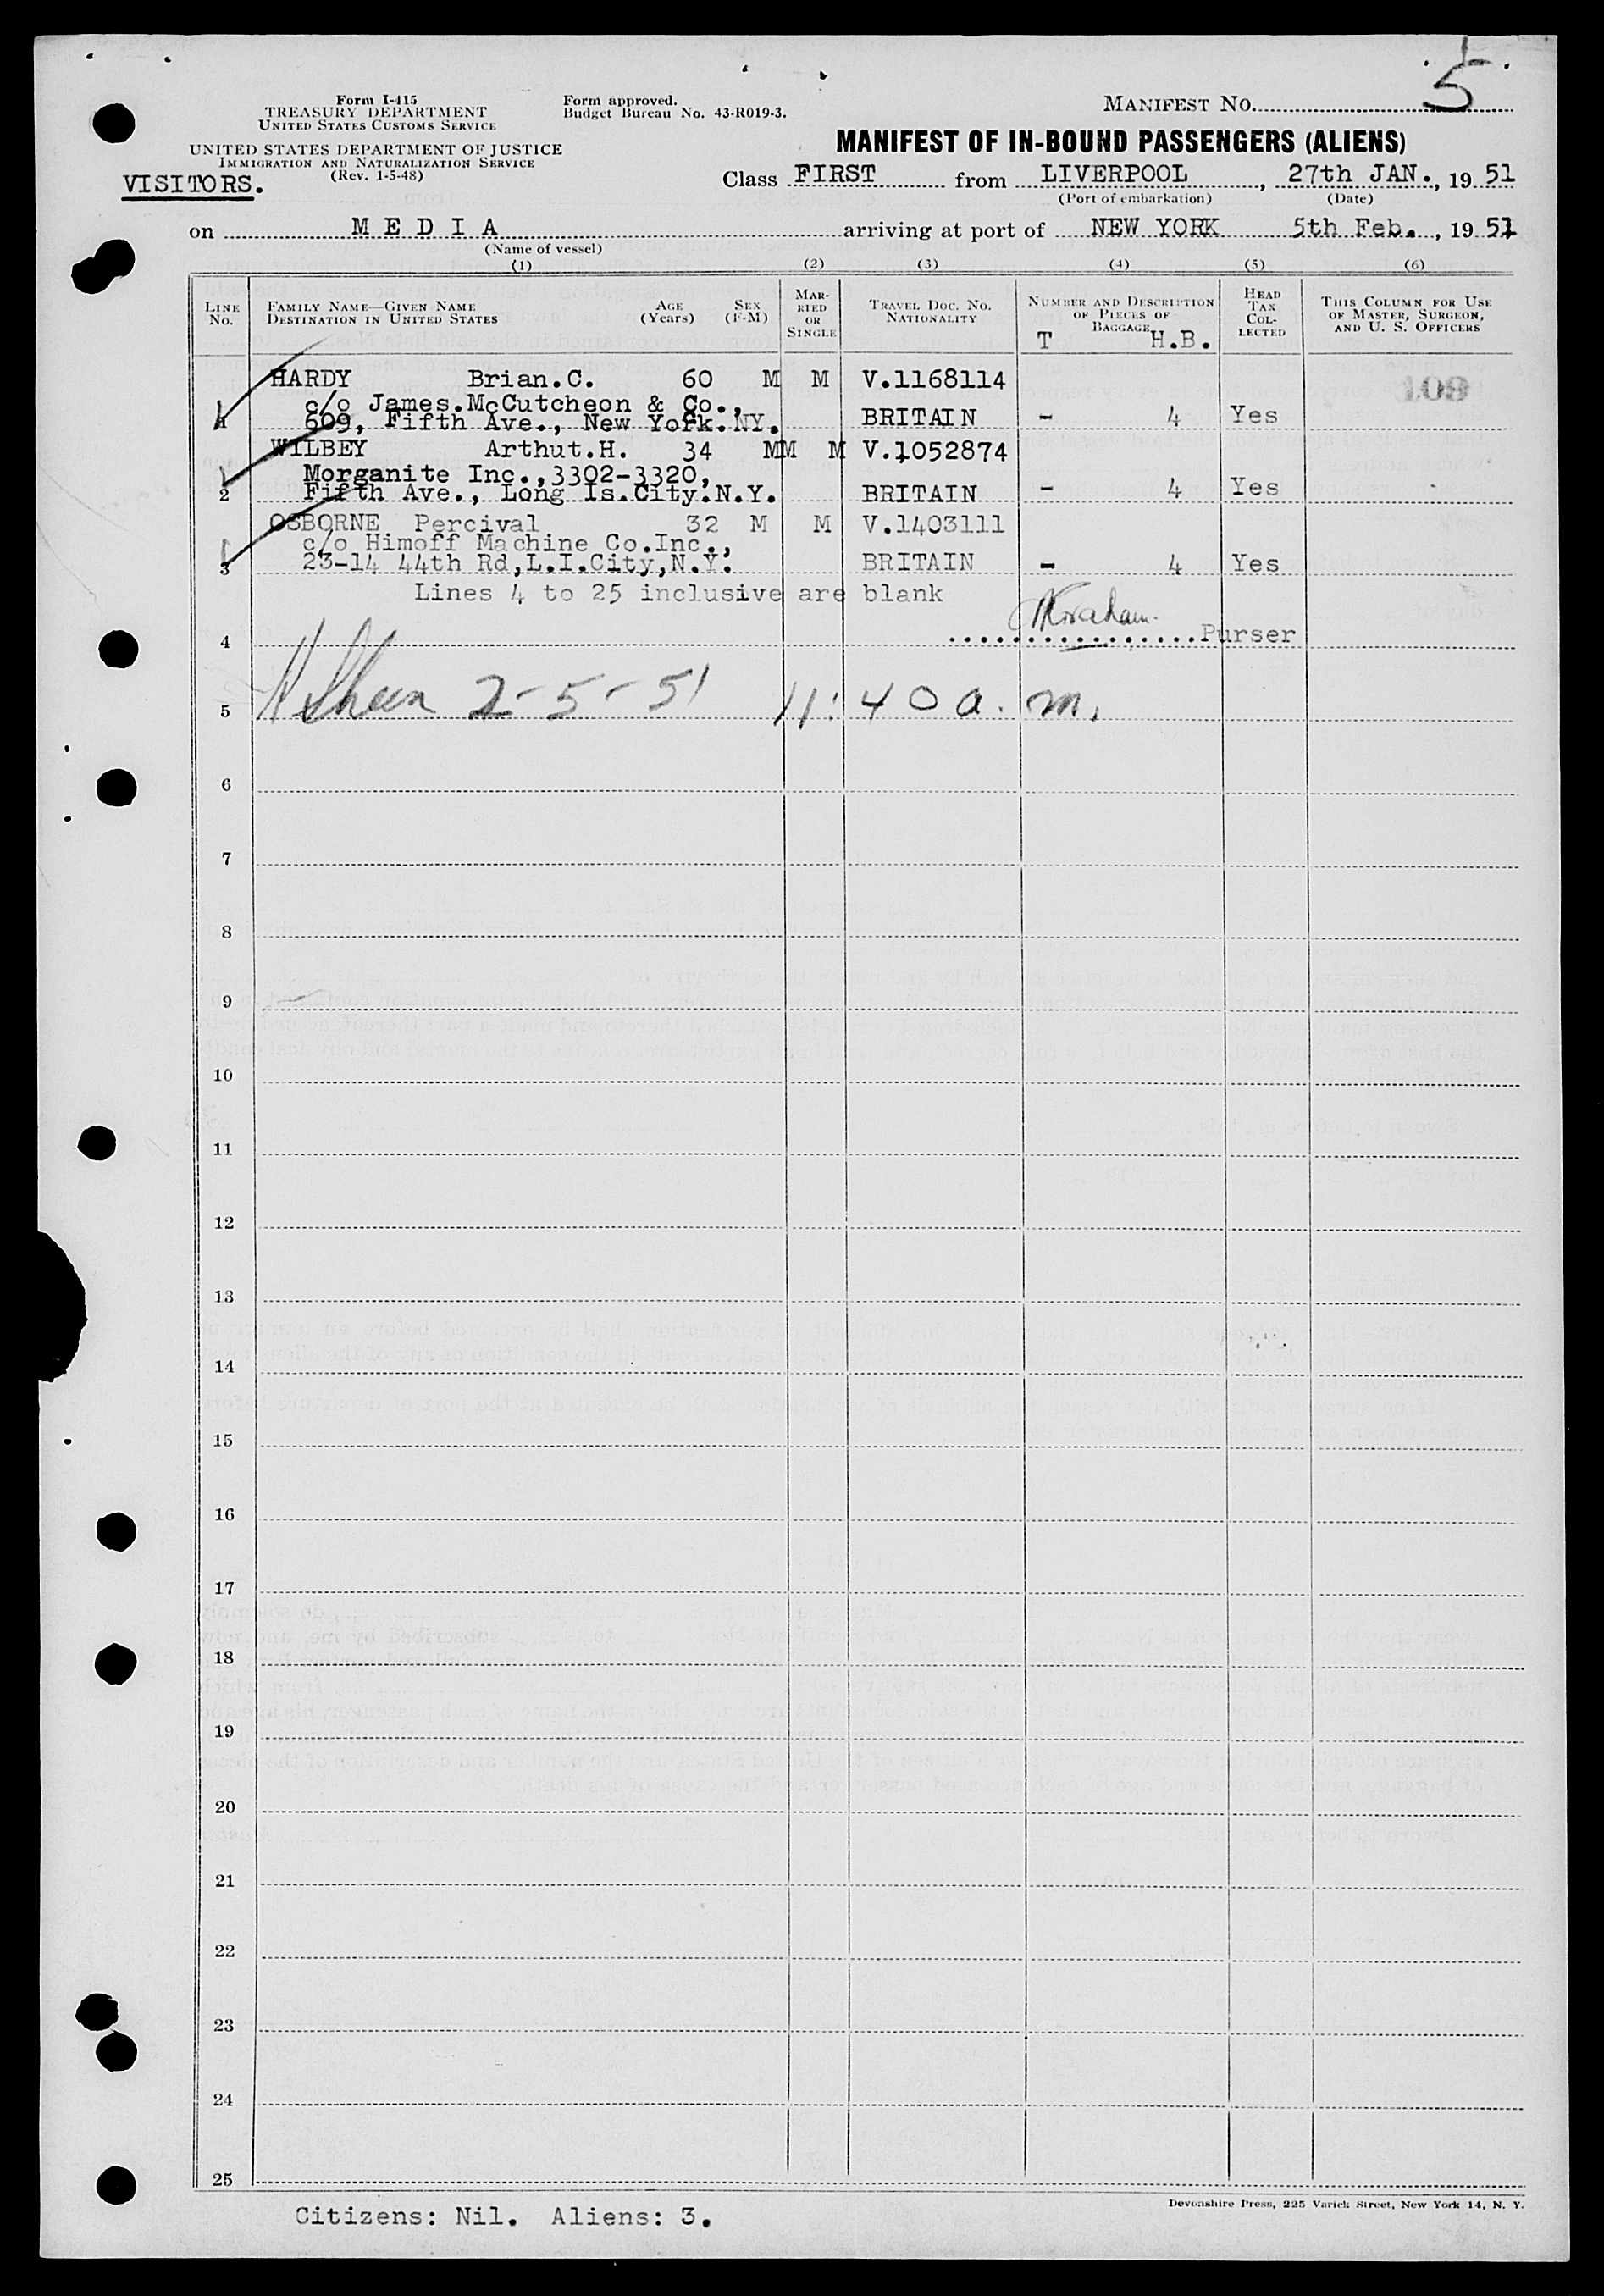 5
Form I-415
TREASURY DEPARTMENT
UNITED STATES CUSTOMS SERVICE
UNITED STATES DEPARTMENT OF JUSTICE
IMMIGRATION AND NATURALIZATION SERVICE
(Rev. 1-5-48)
VISITORS.
Form approved.
Budget Bureau No. 43-R019-3.
MANIFEST NO.
MANIFEST OF IN-BOUND PASSENGERS (ALIENS)
Class FIRST from LIVERPOOL, 27th JAN., 19 51
(Port of embarkation) (Date)
on M E D I A arriving at port of NEW YORK 5th Feb., 19 51
(Name of vessel)
(1) (2) (3) (4) (5) (6)
LINE NO. FAMILY NAME—GIVEN NAME DESTINATION IN UNITED STATES AGE (Years) SEX (F-M) MARRIED OR SINGLE TRAVEL DOC. NO. NATIONALITY NUMBER AND DESCRIPTION OF PIECES OF BAGGAGE HEAD TAX COLLECTED THIS COLUMN FOR USE OF MASTER, SURGEON, AND U. S. OFFICERS
T H.B.
HARDY Brian.C. 60 M M V.1168114
c/o James.McCutcheon & Co.,
1 609, Fifth Ave., New York.NY. BRITAIN - 4 Yes
WILBEY Arthut.H. 34 MM M V.1052874
Morganite Inc.,3302-3320,
2 Fifth Ave., Long Is.City.N.Y. BRITAIN - 4 Yes
OSBORNE Percival 32 M M V.1403111
c/o Himoff Machine Co.Inc.,
3 23-14 44th Rd,L.I.City,N.Y. BRITAIN - 4 Yes
Lines 4 to 25 inclusive are blank
4 Purser
5 2-5-51 11:40 a.m.
6
7
8
9
10
11
12
13
14
15
16
17
18
19
20
21
22
23
24
25
Citizens: Nil. Aliens: 3.
Devonshire Press, 225 Varick Street, New York 14, N. Y.